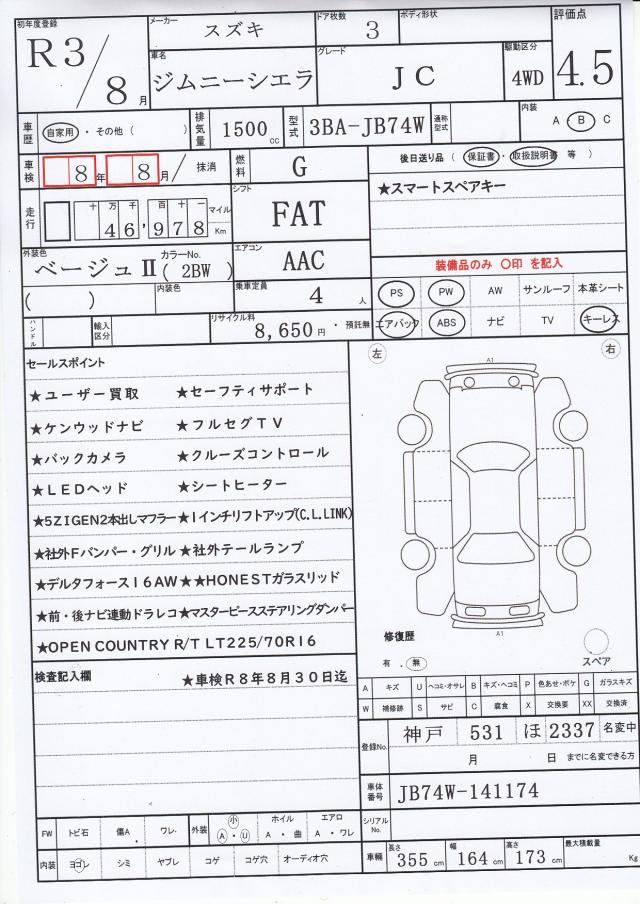 初年度登録 R3/8月
メーカー スズキ
ドア枚数 3
ボディ形状
評価点 4.5
車名 ジムニーシエラ
グレード JC
駆動区分 4WD
車歴 自家用・その他( )
排気量 1500cc
型式 3BA-JB74W
通称型式
内装 A・B C
車検 8年 8月/ 抹消
燃料 G
後日送り品(保証書・取扱説明書 等)
走行 十万千百十一 46,978 マイル Km
シフト FAT
★スマートスペアキー
外装色 ベージュⅡ カラーNo.(2BW)
エアコン AAC
装備品のみ ○印 を記入
( )
内装色
乗車定員 4人
PS PW AW サンルーフ 本革シート
ハンドル
輸入区分
リサイクル料 8,650円・預託無
エアバック ABS ナビ TV キーレス
セールスポイント
左 右
A1
★ユーザー買取 ★セーフティサポート
★ケンウッドナビ ★フルセグTV
★バックカメラ ★クルーズコントロール
★LEDヘッド ★シートヒーター
★5ZIGEN2本出しマフラー★1インチリフトアップ(C.L.LINK)
★社外Fバンパー・グリル★社外テールランプ
★デルタフォース16AW★★HONESTガラスリッド
★前・後ナビ連動ドラレコ★マスターピースステアリングダンパー
★OPEN COUNTRY R/T LT225/70R16
A1
修復歴
有.無
スペア
検査記入欄
★車検R8年8月30日迄
A キズ U ヘコミ・オサレ B キズ・ヘコミ P 色あせ・ボケ G ガラスキズ
W 補修跡 S サビ C 腐食 X 交換要 XX 交換済
登録No. 神戸 531 ほ 2337 名変中
月 日 までに名変できる方
車体番号 JB74W-141174
シリアルNo.
FW トビ石 傷A. ワレ.
外装 小 A・U
ホイル A・曲
エアロ A・ワレ
内装 ヨゴレ シミ ヤブレ コゲ コゲ穴 オーディオ穴
車輛 長さ 355cm 幅 164cm 高さ 173cm 最大積載量 Kg